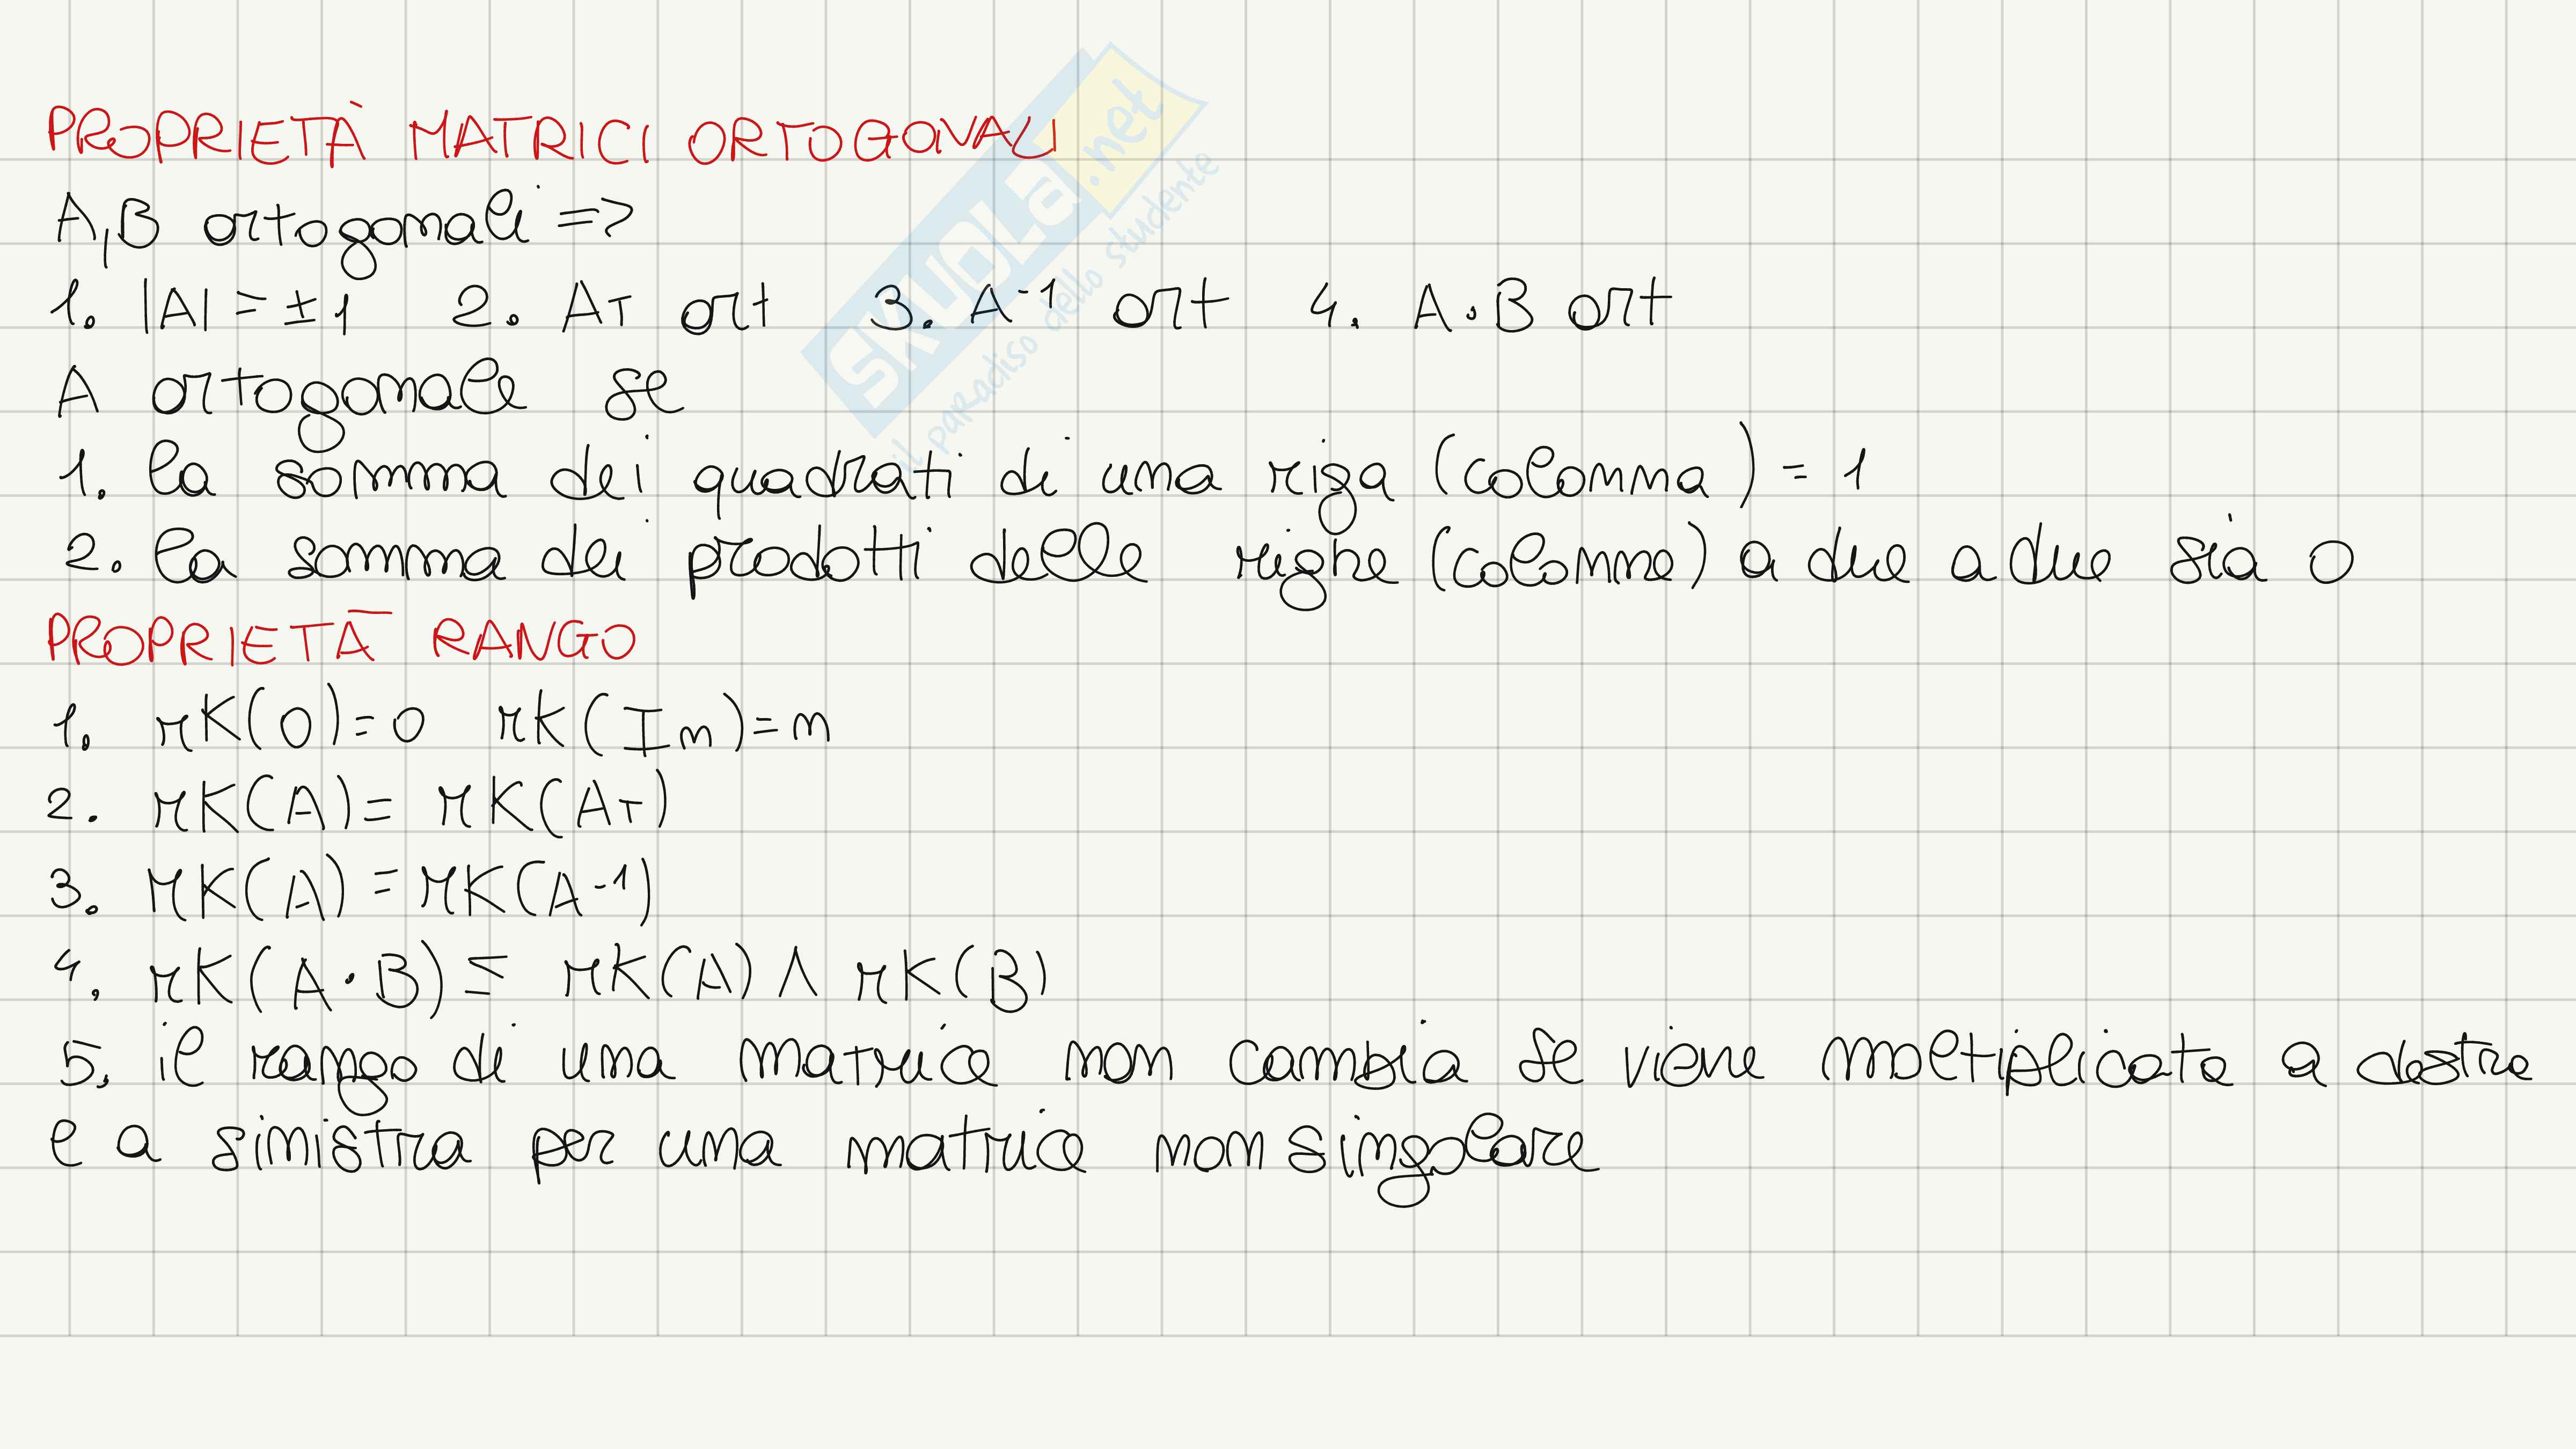 PROPRIETÀ MATRICI ORTOGONALI
A,B ortogonali =>
1. |A| = ±1 2. AT ort 3. A⁻¹ ort 4. A·B ort
A ortogonale se
1. la somma dei quadrati di una riga (colonna) = 1
2. la somma dei prodotti delle righe (colonne) a due a due sia 0
PROPRIETÀ RANGO
1. rK(0)=0 rK(In)=n
2. rK(A)= rK(AT)
3. rK(A) = rK(A⁻¹)
4. rK(A·B) ≤ rK(A) ∧ rK(B)
5. il rango di una matrice non cambia se viene moltiplicata a destra
e a sinistra per una matrice non singolare
SKUOLA.net
il paradiso dello studente